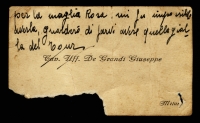 per la maglia Rosa. mi fu impossibile
averla, guarderò di farti avere quella gial-
la del Tour
Cav. Uff. De Grandi Giuseppe
Milano